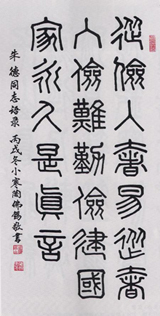 從儉入奢易從奢
入儉難勤儉建國
家永久是眞言
朱德同志語录 丙戌冬小寒陶佛錫敬書